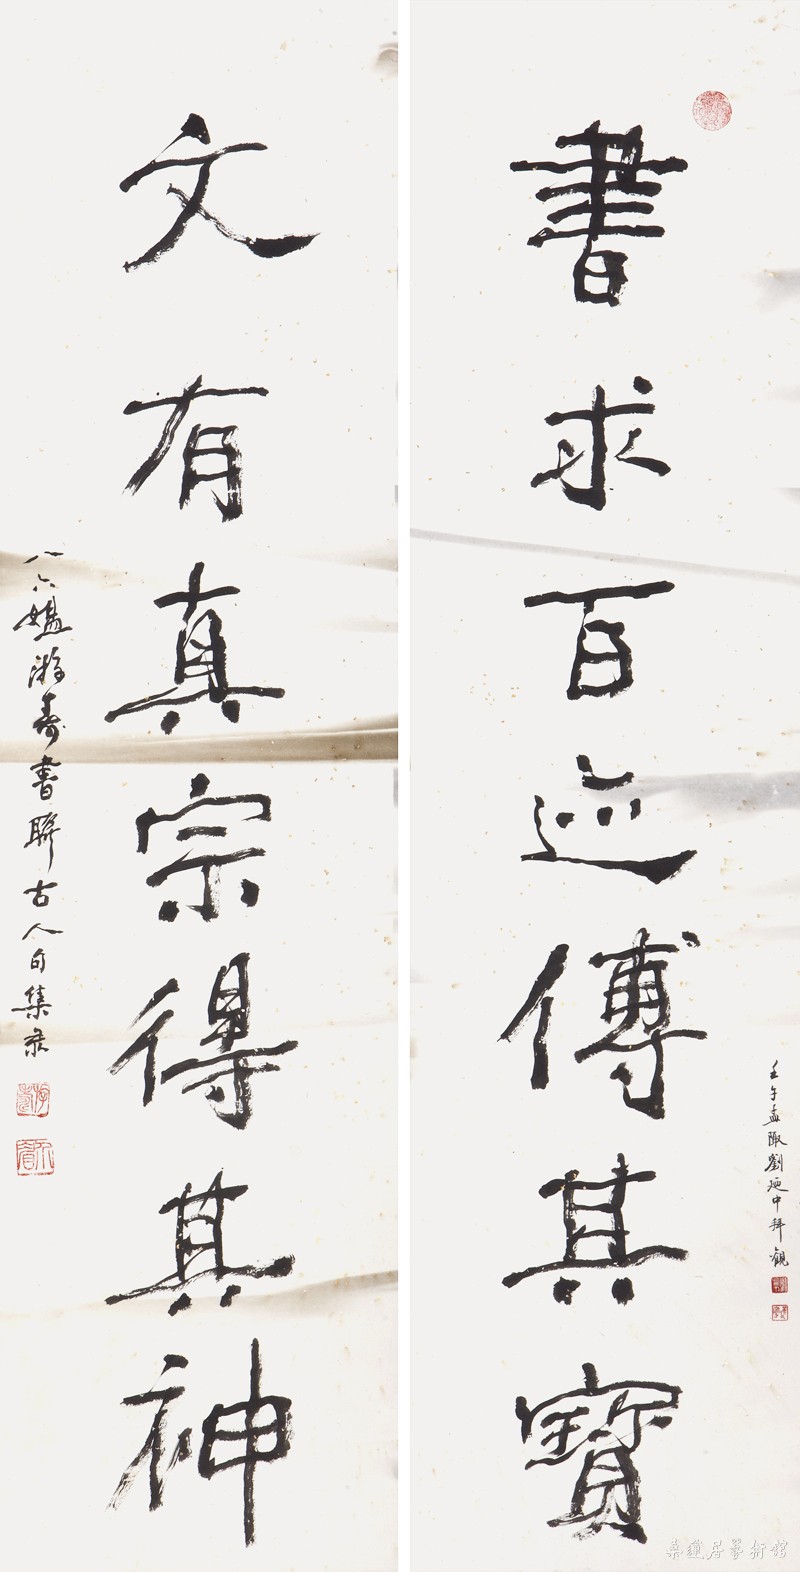 書求百迹傳其寶
壬午孟陬劉迺中拜觀
文有真宗得其神
八六媪游寿書聯古人句集录
桑蓮居藝術館